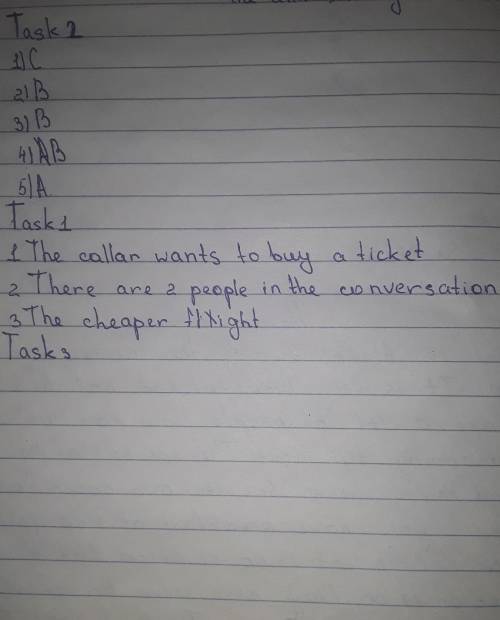 Task 2
1) C
2) B
3) B
4) AB
5) A
Task 1
1 The callar wants to buy a ticket
2 There are 2 people in the conversation
3 The cheaper flight
Task 3